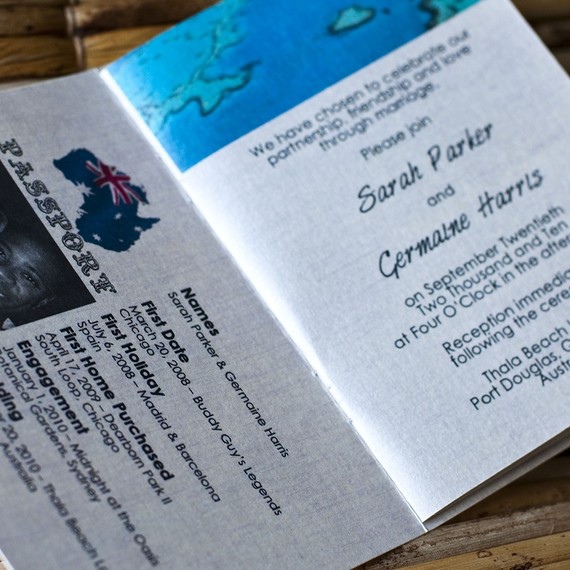 PASSPORT
Names
Sarah Parker & Germaine Harris
First Date
March 20, 2008 – Buddy Guy's Legends
Chicago
First Holiday
July 6, 2008 – Madrid & Barcelona
Spain
First Home Purchased
April 17, 2009 – Dearborn Park II
South Loop, Chicago
Engagement
January 1, 2010 – Midnight at the Oasis
Botanical Gardens, Sydney
20, 2010 – Thala Beach
Australia
We have chosen to celebrate our
partnership, friendship and love
through marriage.
Please join
Sarah Parker
and
Germaine Harris
on September Twentieth
Two Thousand and Ten
at Four O'Clock in the
Reception
following the
Thala Beach
Port Douglas,